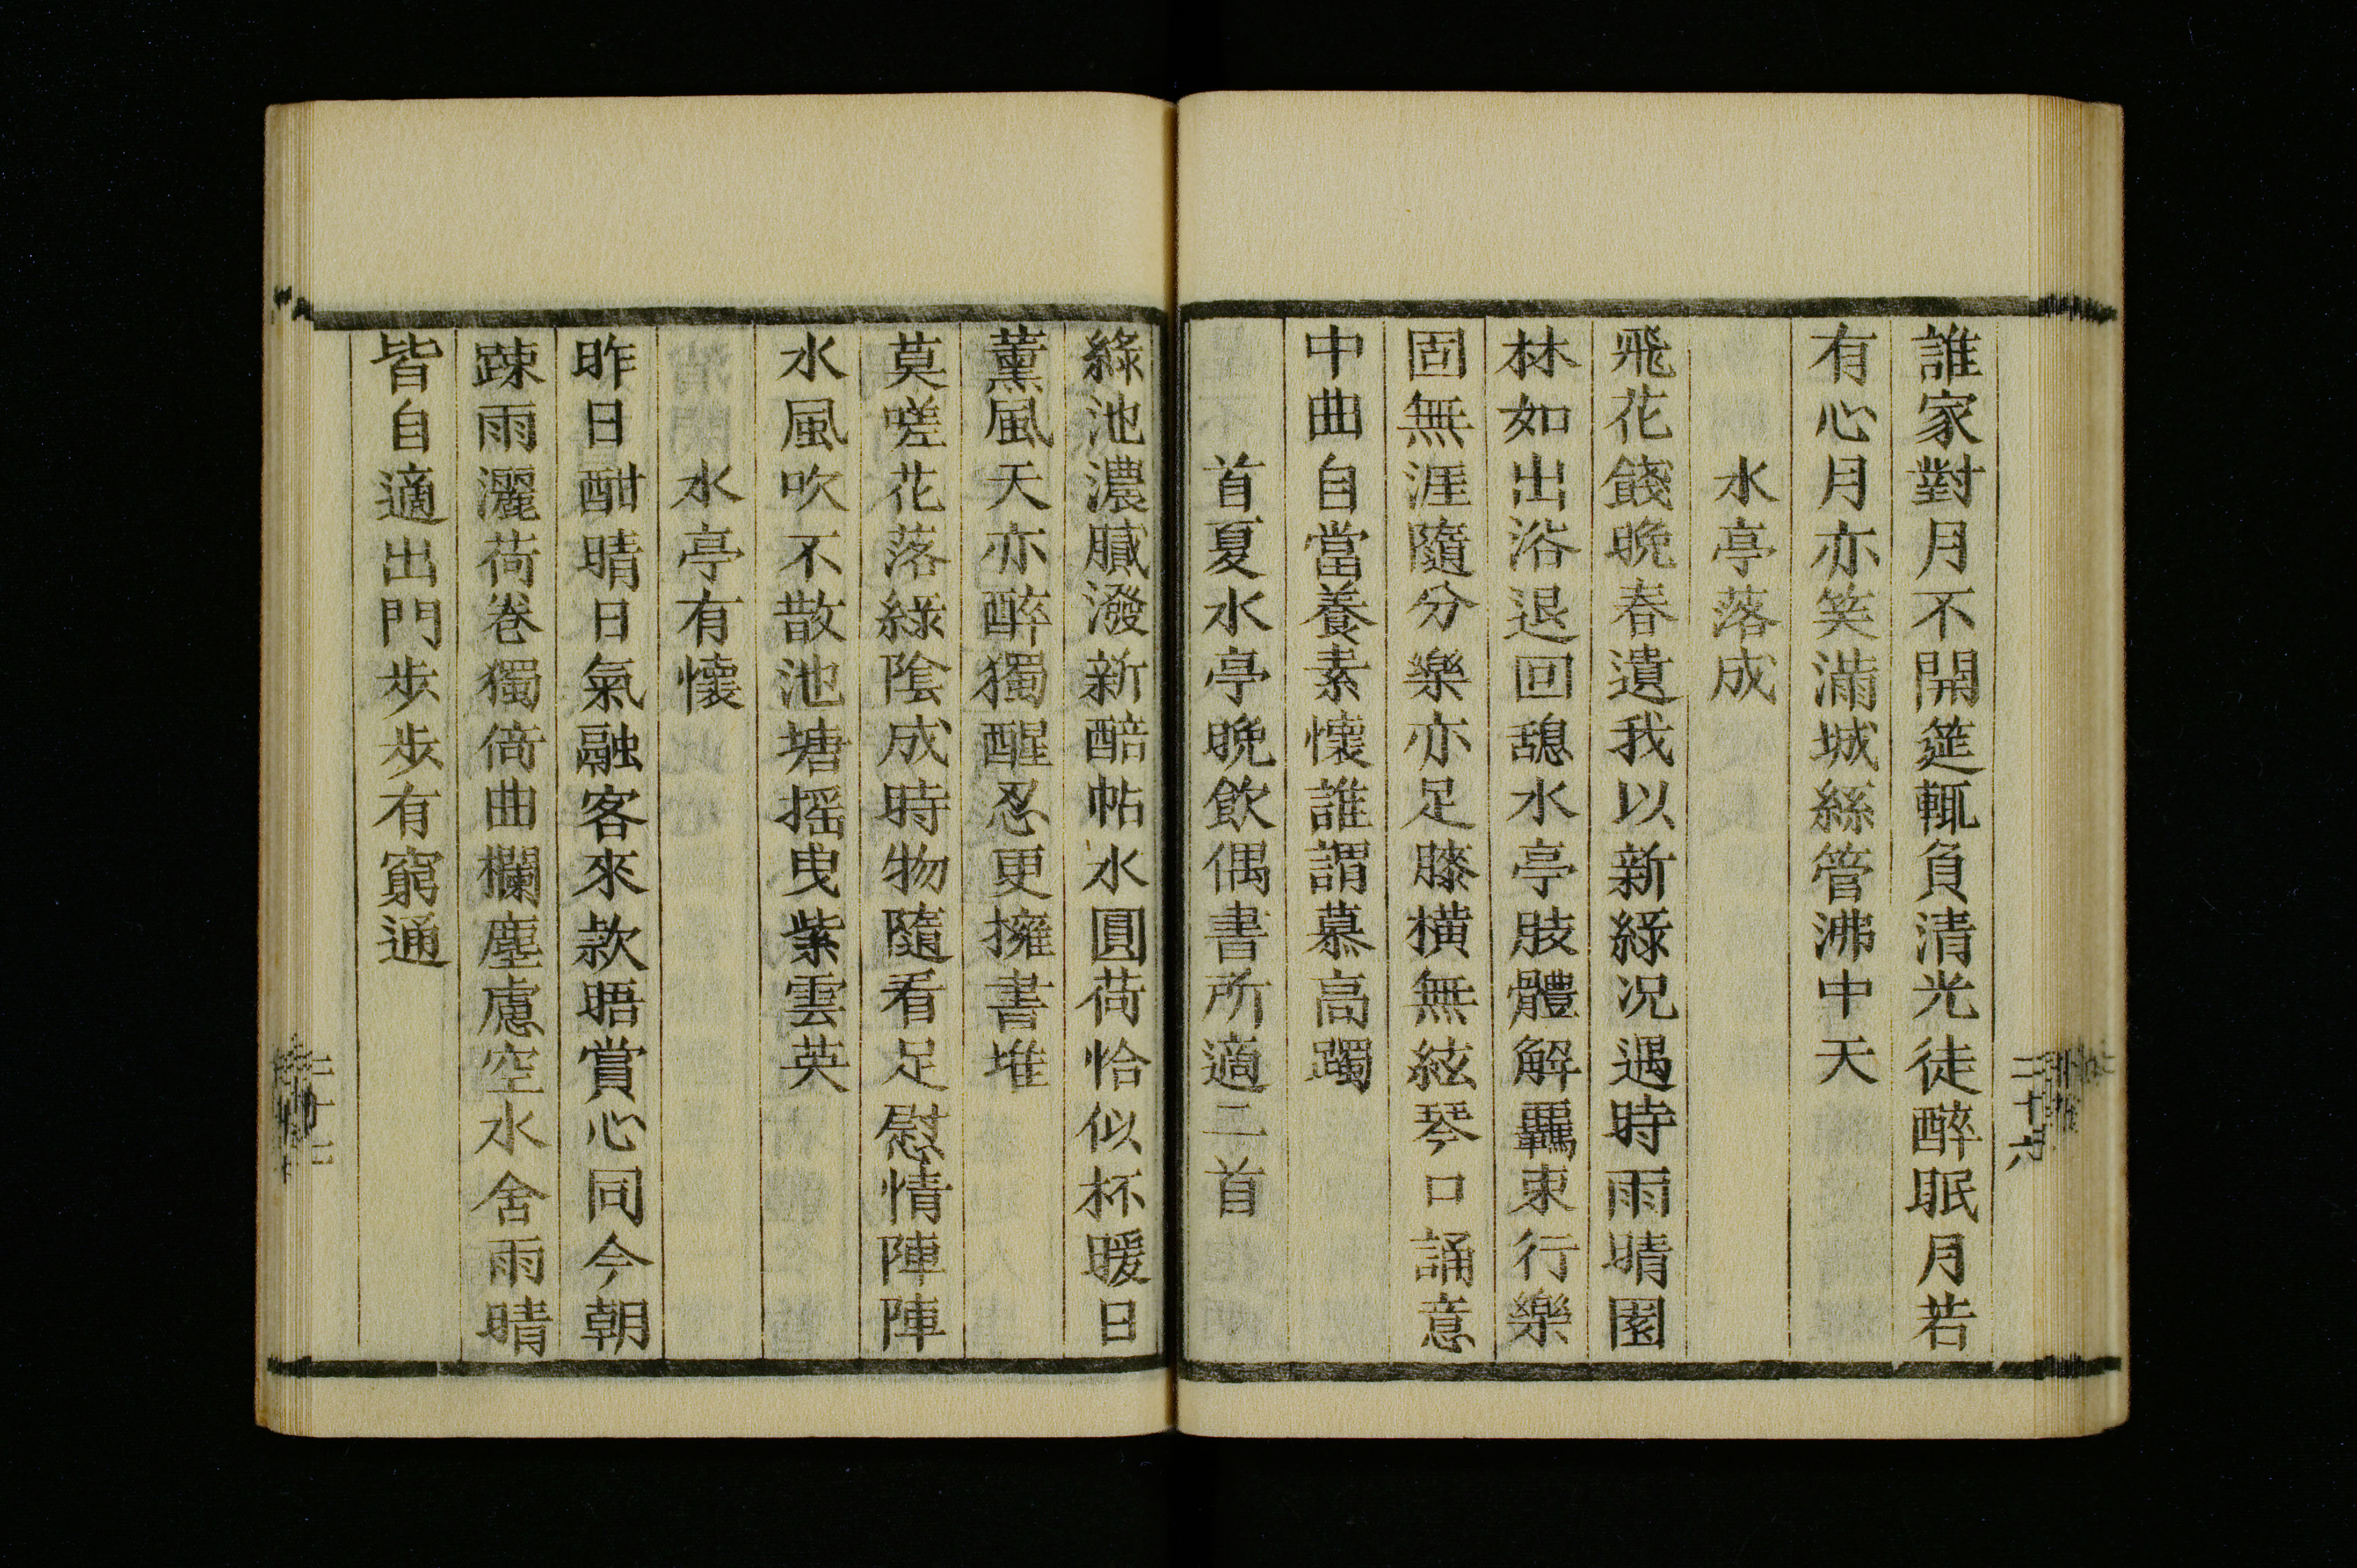 誰家對月不開筵輒負清光徒醉眠月若
有心月亦笑滿城絲管沸中天
水亭落成
飛花餞晚春遺我以新綠况遇時雨晴園
林如出浴退回憩水亭肢體解羈束行樂
固無涯隨分樂亦足膝橫無絃琴口誦意
中曲自當養素懷誰謂慕高躅
首夏水亭晚飲偶書所適二首
綠池濃膩潑新醅帖水圓荷恰似杯暖日
薰風天亦醉獨醒忍更擁書堆
莫嗟花落綠陰成時物隨看足慰情陣陣
水風吹不散池塘搖曳紫雲英
水亭有懷
昨日酣晴日氣融客來款晤賞心同今朝
踈雨灑荷卷獨倚曲欄塵慮空水舍雨晴
皆自適出門步步有窮通
二十六